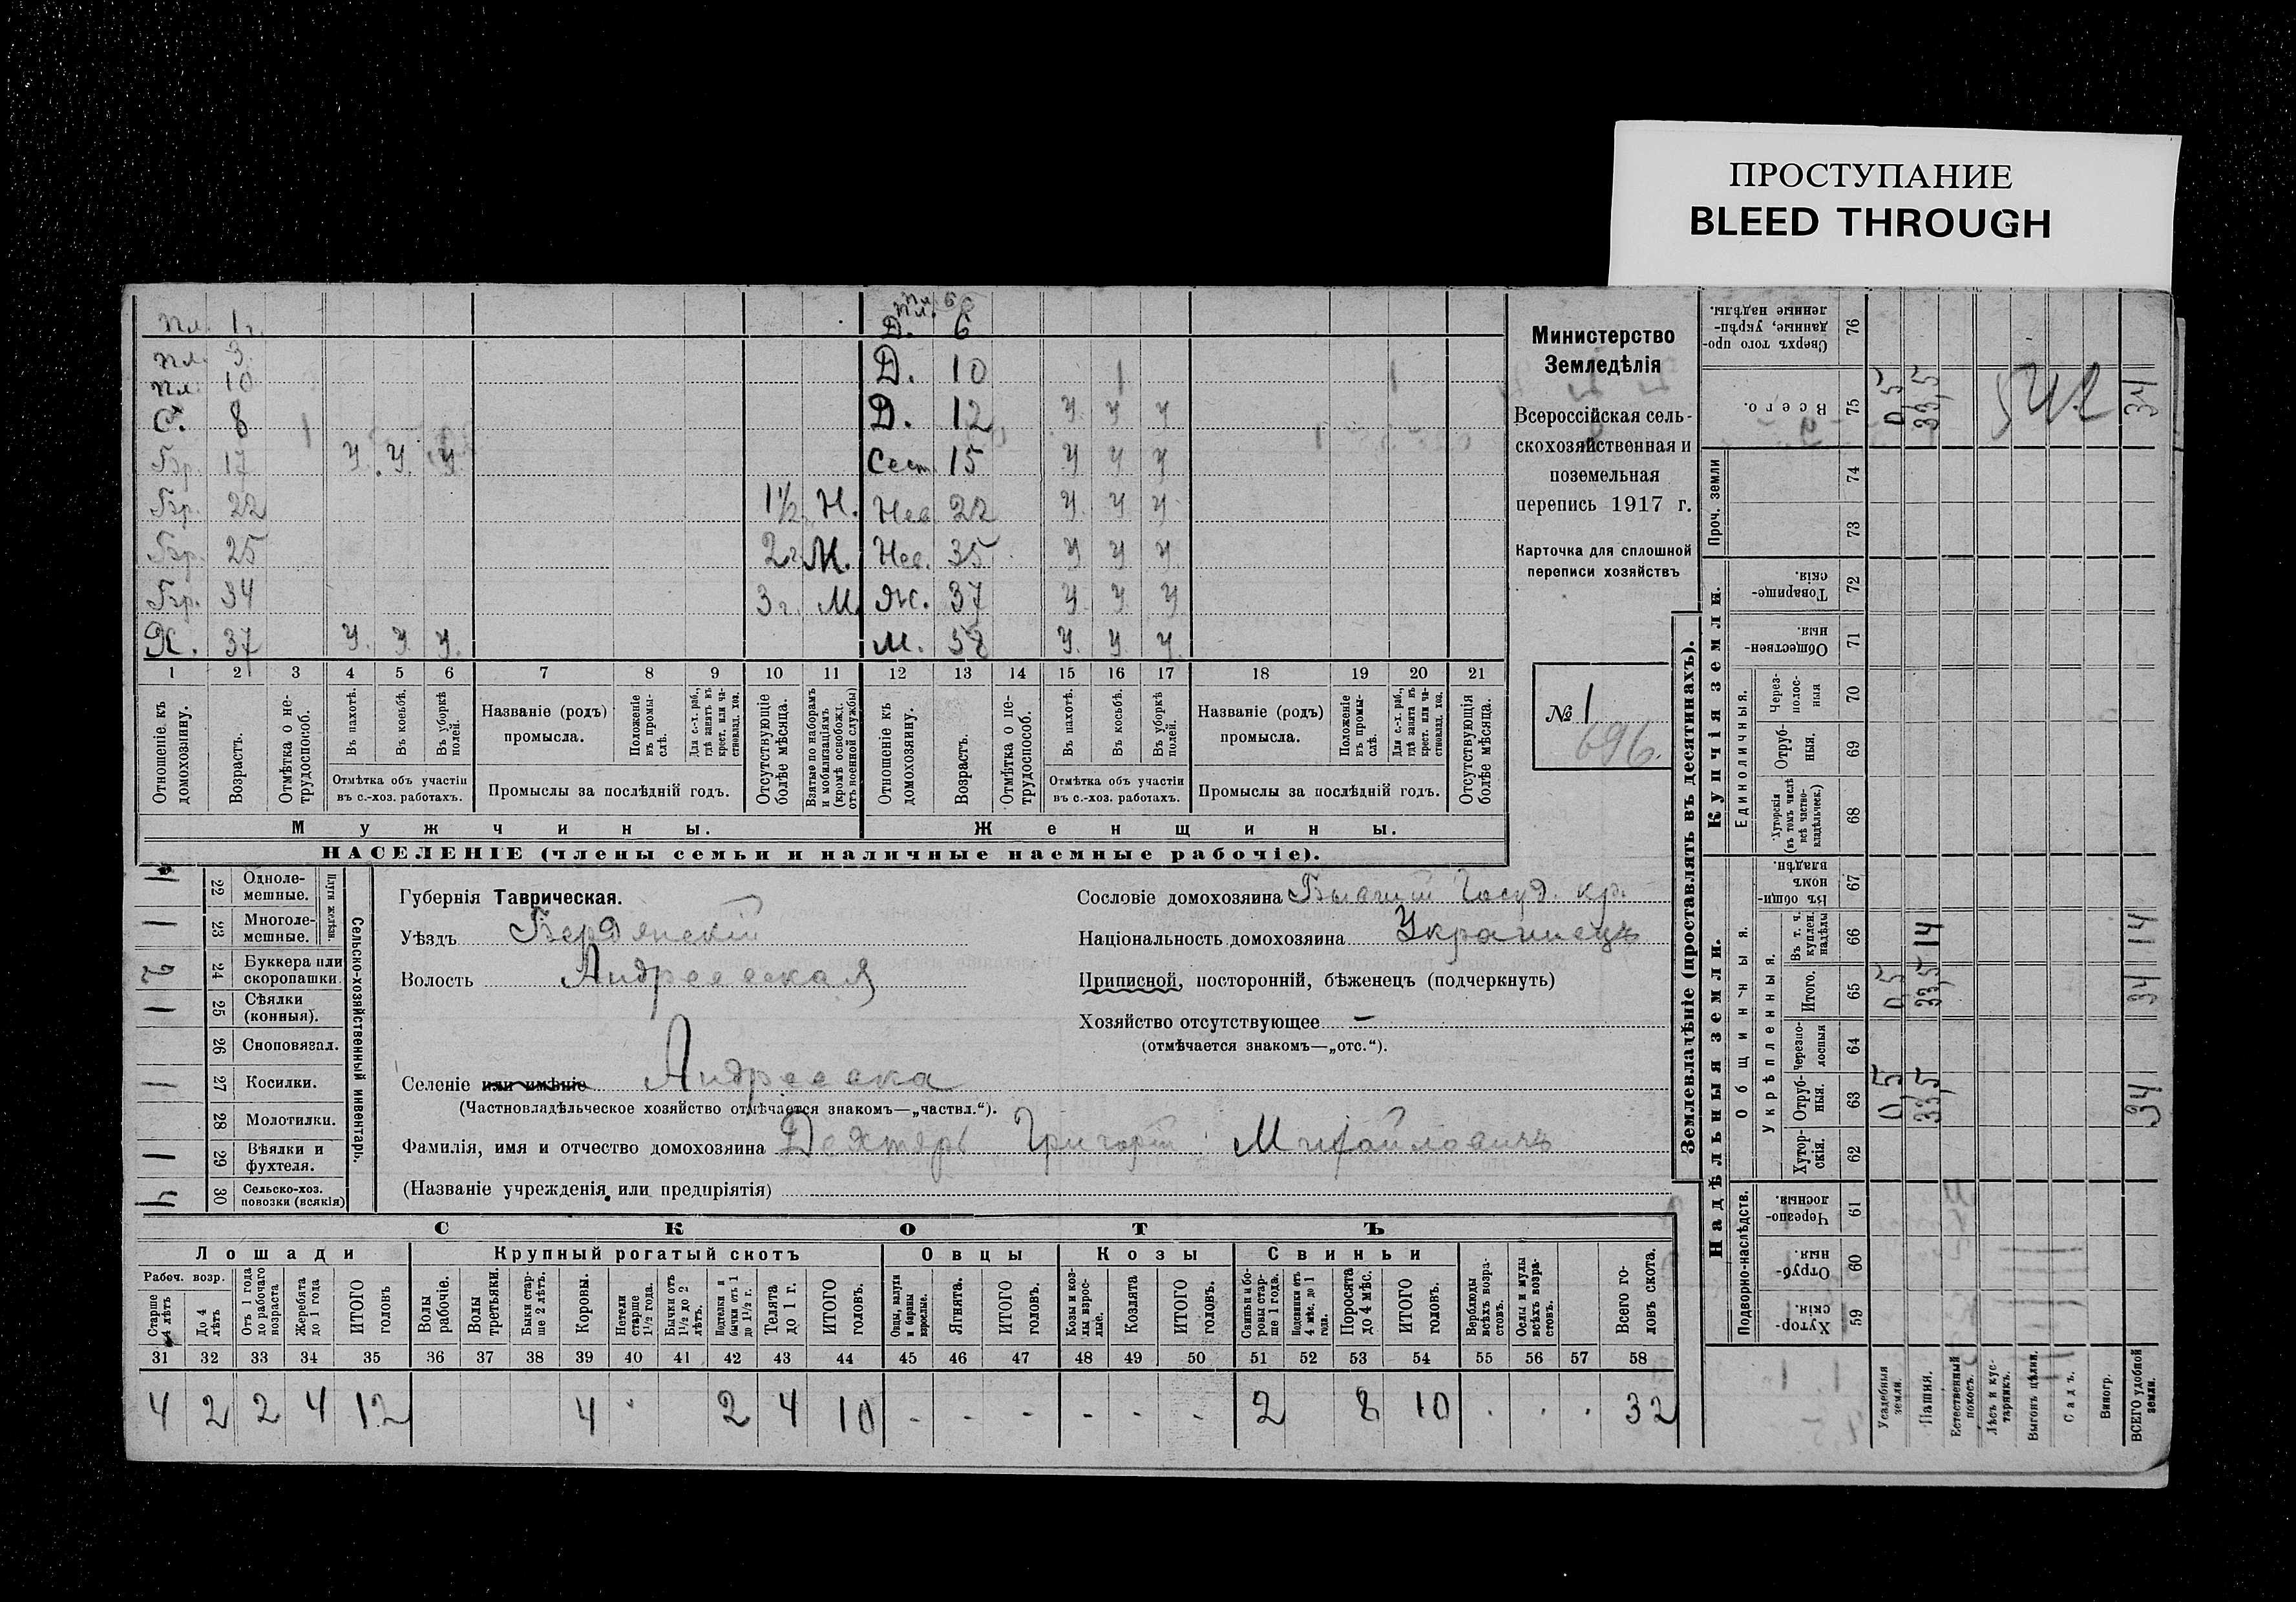 ПРОСТУПАНИЕ
BLEED THROUGH
Министерство
Земледѣлія
Всероссійская сель-
скохозяйственная и
поземельная
перепись 1917 г.
Карточка для сплошной
переписи хозяйствъ
№ 1
696.
пл. 1 г.
пл. 3
пл. 10
С. 8
Бр. 17 У. У. У.
Бр. 22 1½ Н.
Бр. 25 2 г. М.
Бр. 34 3 г. М.
Х. 37 У. У. У.
пл. 6
Д. 6
Д. 10
Д. 12 У У У
Сест. 15 У У У
Нев. 22 У У У
Нев. 35 У У У
Ж. 37 У У У
М. 58 У. У. У.
1 2 3 4 5 6 7 8 9 10 11 12 13 14 15 16 17 18 19 20 21
Отношеніе къ домохозяину.
Возрастъ.
Отмѣтка о не-трудоспособ.
Въ пахотѣ.
Въ косьбѣ.
Въ уборкѣ полей.
Отмѣтка объ участіи
въ с.-хоз. работахъ.
Названіе (родъ)
промысла.
Положеніе въ промы-слѣ.
Для с.-х. раб., гдѣ занятъ въ крест. или ча-стновлад. хоз.
Промыслы за послѣдній годъ.
Отсутствующіе болѣе мѣсяца.
Взятые по наборамъ и мобилизаціямъ (кромѣ освобожд. отъ военной службы)
Отношеніе къ домохозяину.
Возрастъ.
Отмѣтка о не-трудоспособ.
Въ пахотѣ.
Въ косьбѣ.
Въ уборкѣ полей.
Отмѣтка объ участіи
въ с.-хоз. работахъ.
Названіе (родъ)
промысла.
Положеніе въ промы-слѣ.
Для с.-х. раб., гдѣ занята въ крест. или ча-стновлад. хоз.
Промыслы за послѣдній годъ.
Отсутствующія болѣе мѣсяца.
Мужчины.
Женщины.
НАСЕЛЕНІЕ (члены семьи и наличные наемные рабочіе).
Сельско-хозяйственный инвентарь.
Плуги желѣзн.
1 22 Одноле-мешные.
1 23 Многоле-мешные.
2 24 Буккера или скоропашки.
1 25 Сѣялки (конныя).
26 Сноповязал.
1 27 Косилки.
28 Молотилки.
1 29 Вѣялки и фухтеля.
4 30 Сельско-хоз. повозки (всякія)
Губернія Таврическая.
Уѣздъ Бердянскій
Волость Андреевская
Селеніе или имѣніе Андреевка
(Частновладѣльческое хозяйство отмѣчается знакомъ—„частвл.“).
Фамилія, имя и отчество домохозяина Дехтярь Григорій Михайловичъ
(Названіе учрежденія или предпріятія)
Сословіе домохозяина Бывший Госуд. кр.
Національность домохозяина Украинецъ
Приписной, посторонній, бѣженецъ (подчеркнуть)
Хозяйство отсутствующее —
(отмѣчается знакомъ—„отс.“).
СКОТЪ
Лошади
Крупный рогатый скотъ
Овцы
Козы
Свиньи
Рабоч. возр.
Старше 4 лѣтъ
До 4 лѣтъ
Отъ 1 года до рабочаго возраста
Жеребята до 1 года
ИТОГО головъ
Волы рабочіе.
Волы третьяки.
Быки стар-ше 2 лѣтъ.
Коровы.
Нетели старше 1½ года.
Бычки отъ 1½ до 2 лѣтъ.
Подтелки и бычки отъ 1 до 1½ г.
Телята до 1 г.
ИТОГО головъ.
Овцы, валухи и бараны взрослые.
Ягнята.
ИТОГО головъ.
Козы и коз-лы взрос-лые.
Козлята
ИТОГО головъ.
Свиньи и бо-ровы стар-ше 1 года.
Подсвинки отъ 4 мѣс. до 1 года.
Поросята до 4 мѣс.
ИТОГО головъ.
Верблюды всѣхъ возра-стовъ.
Ослы и мулы всѣхъ возра-стовъ.
Всего го-ловъ скота.
31 32 33 34 35 36 37 38 39 40 41 42 43 44 45 46 47 48 49 50 51 52 53 54 55 56 57 58
4 2 2 4 12 4 2 4 10 - - - - - - 2 8 10 . . . 32
Землевладѣніе (проставлять въ десятинахъ).
Сверхъ того про-данные, укрѣп-ленные надѣлы. 76
Всего. 75 0,5 33,5 34
Проч. земли
74
73
Купчія земли.
Товарище-скія. 72
Обществен-ныя. 71
Единоличныя.
Через-полос-ныя 70
Отруб-ныя. 69
Хуторскія (въ томъ числѣ всѣ частно-владѣльческ.) 68
Надѣльныя земли.
Общинныя.
Въ общин-номъ владѣн. 67
Укрѣпленныя.
Въ т. ч. куплен. надѣлы 66 14 14
Итого. 65 0,5 33,5 34
Черезпо-лосныя 64
Отруб-ныя. 63 0,5 33,5 34
Хутор-скія. 62
Подворно-наслѣдств.
Черезпо-лосныя. 61
Отруб-ныя. 60
Хутор-скія. 59
Усадебныя земли.
Пашня.
Естественный покосъ.
Лѣсъ и кус-тарникъ.
Выгонъ цѣлин.
Садъ.
Виногр.
ВСЕГО удобной земли.